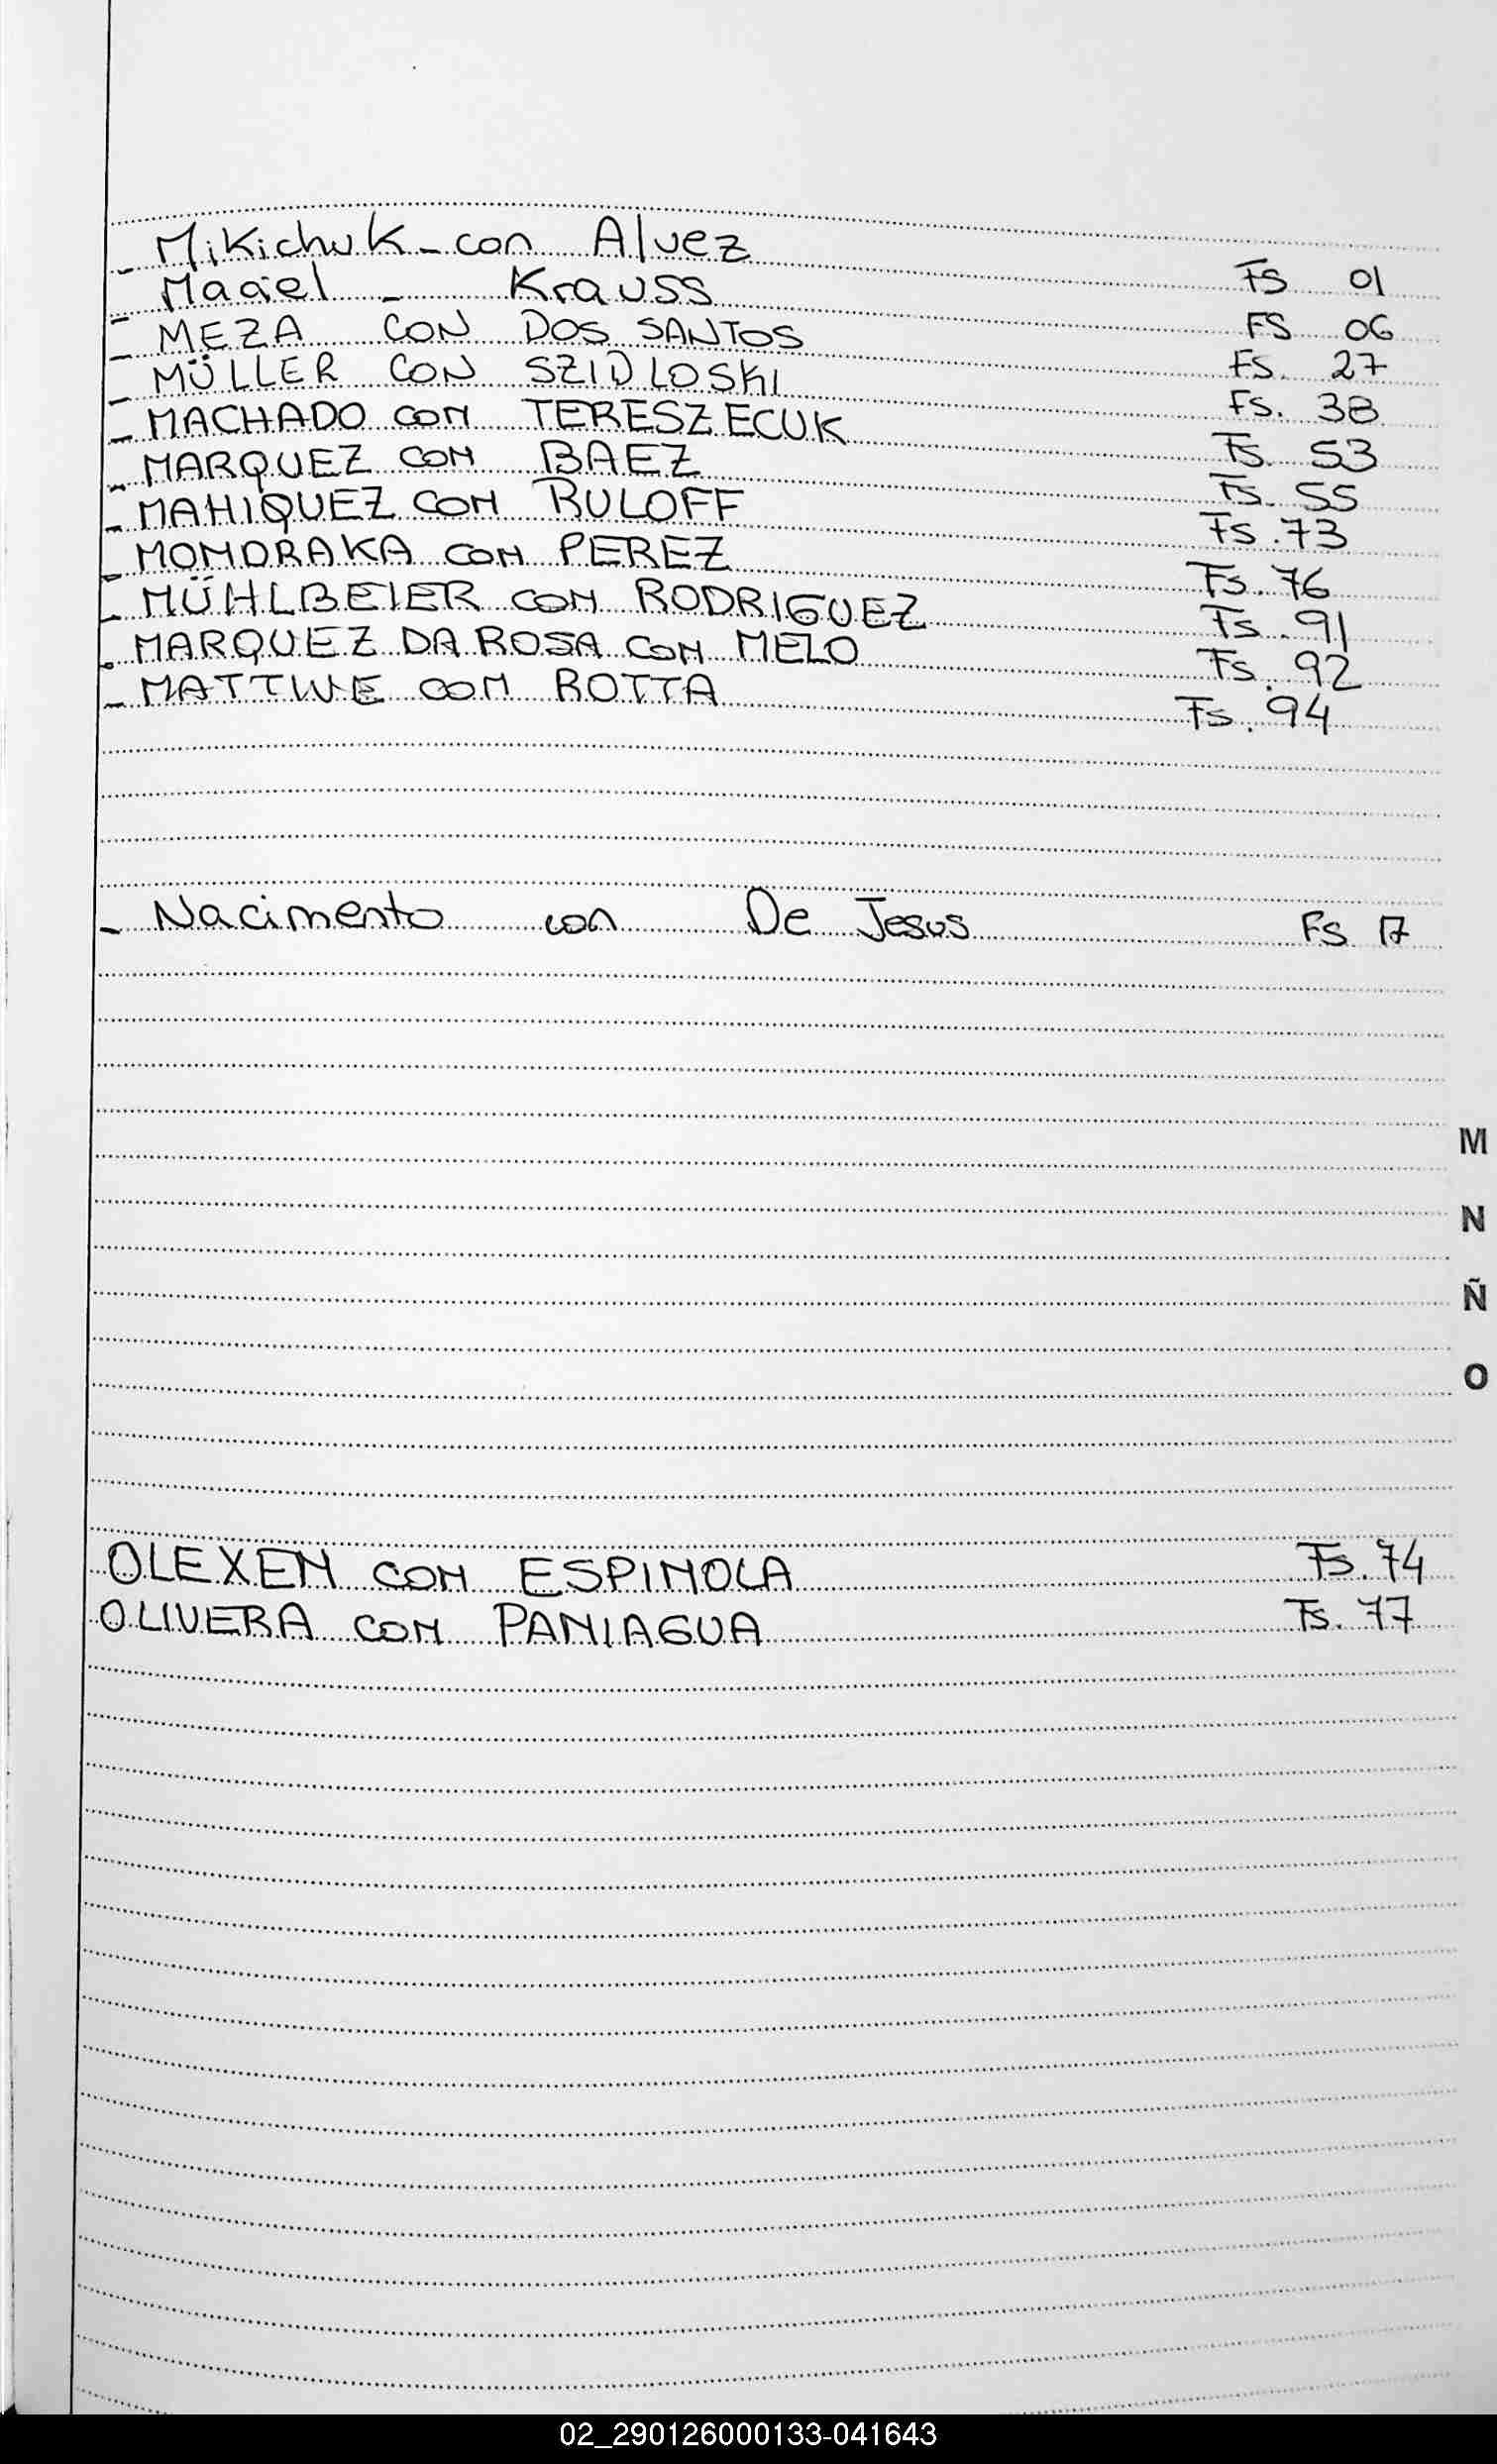 - Mikichuk - con Alvez Fs 01
- Maciel - Krauss FS 06
- MEZA CON DOS SANTOS Fs. 27
- MÜLLER CON SZIDLOSKI Fs. 38
- MACHADO CON TERESZECUK Fs. 53
- MARQUEZ CON BAEZ Fs. 55
- MAHIQUEZ CON RULOFF Fs. 73
- MONDRAKA CON PEREZ Fs. 76
- MÜHLBEIER CON RODRIGUEZ Fs. 91
- MARQUEZ DA ROSA CON MELO Fs. 92
- MATTIWE CON ROTTA Fs. 94
- Nacimento con De Jesus Fs 17
M
N
Ñ
O
OLEXEN CON ESPINOLA Fs. 74
OLIVERA CON PANIAGUA Fs. 77
02_290126000133-041643